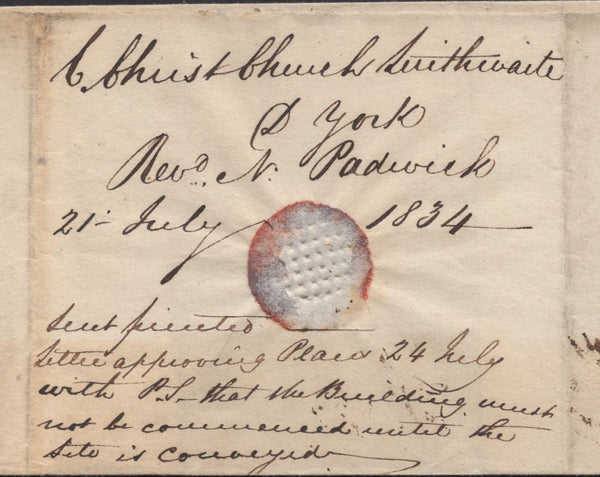 C. Christ Church Linthwaite
D York
Revd. N. Padwick
21 July 1834
Sent printed
letter approving Plans 24 July
with P.S. that the Building must
not be commenced until the
Site is conveyed